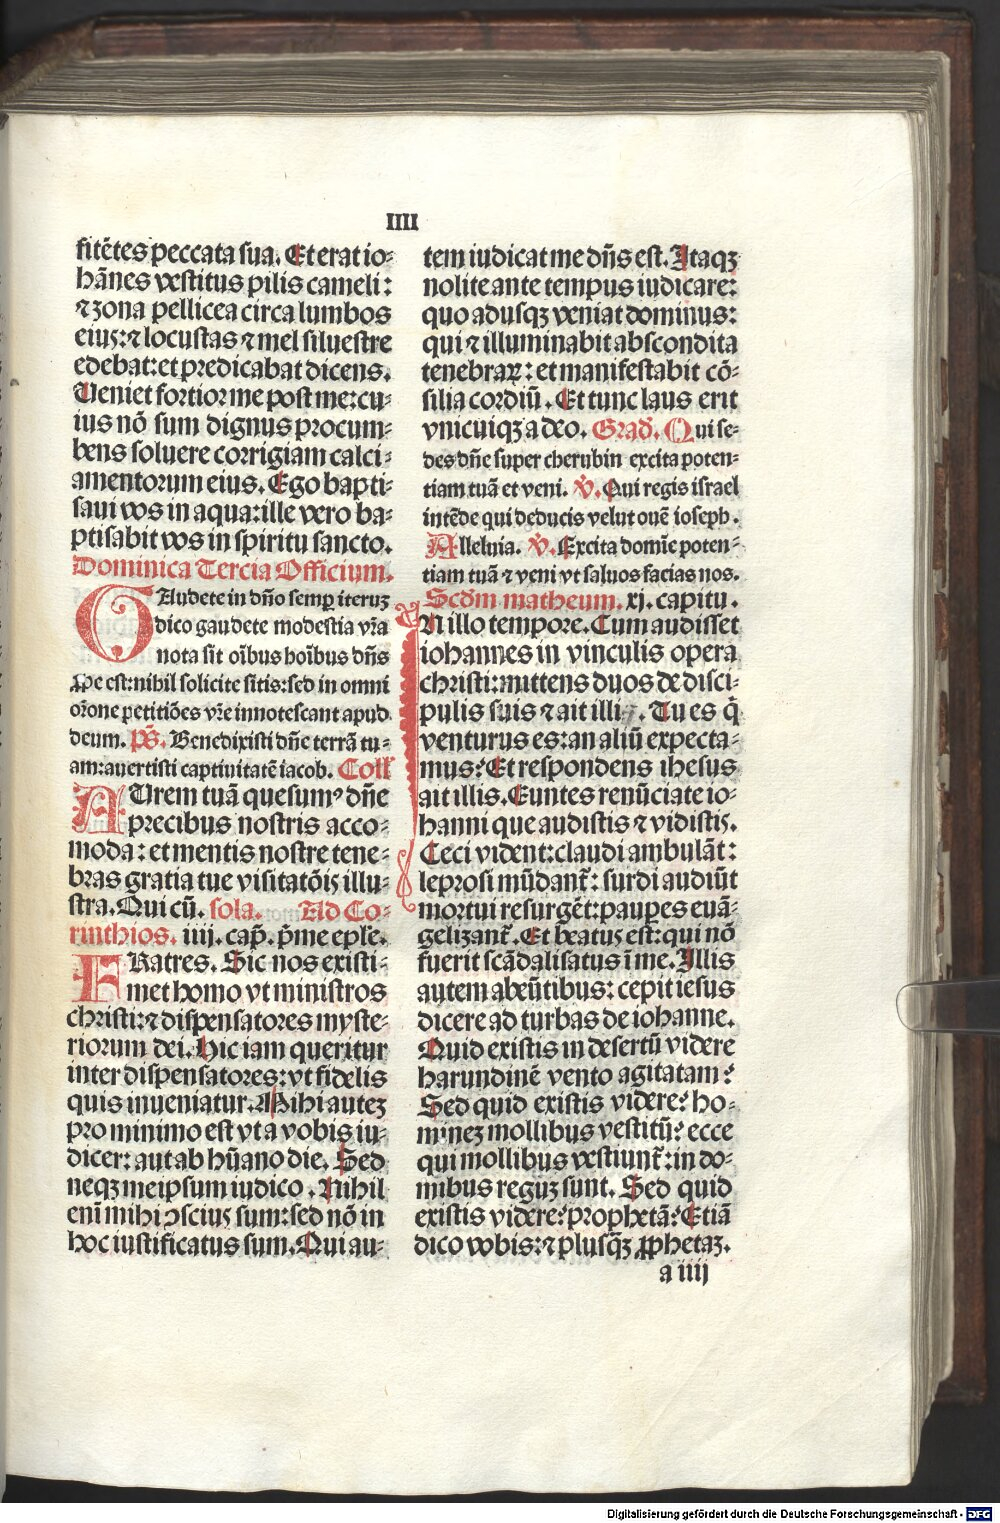 IIII
fitētes peccata sua. Et erat io⸗
hānes vestitus pilis cameli:
⁊ zona pellicea circa lumbos
eiꝰ:⁊ locustas ⁊ mel siluestre
edebat:et predicabat dicens.
Ueniet fortior me post me:cu⸗
ius nō sum dignus procum⸗
bens soluere corrigiam calci⸗
amentorum eius. Ego bapti⸗
saui vos in aqua:ille vero ba⸗
ptisabit vos in spiritu sancto.
Dominica Tercia Officium.
GAudete in dño semꝑ iteruꝫ
dico gaudete modestia vr̄a
nota sit oībus hoībus dñs
ꝓpe est:nihil solicite sitis:sed in omni
or̄one petitiōes vr̄e innotescant apud
deum. ps̄. Benedixisti dñe terrā tu⸗
am:auertisti captiuitatē iacob. Coll̄
AUrem tuā quesumꝰ dñe
precibus nostris acco⸗
moda: et mentis nostre tene⸗
bras gratia tue visitatōis illu⸗
stra. Qui cū. sola. Ad Co⸗
rinthios. iiij. cap̄. p̄me eple.
FRatres. Sic nos existi⸗
met homo vt ministros
christi:⁊ dispensatores myste⸗
riorum dei. Hic iam queritur
inter dispensatores:vt fidelis
quis inueniatur. Mihi auteꝫ
pro minimo est vt a vobis iu⸗
dicer: aut ab hūano die. Sed
neqꝫ meipsum iudico. Nihil
enī mihi ꝯsciꝰ sum:sed nō in
hoc iustificatus sum. Qui au⸗
tem iudicat me dñs est. Itaqꝫ
nolite ante tempus iudicare:
quo adusqꝫ veniat dominus:
qui ⁊ illuminabit abscondita
tenebraꝝ: et manifestabit cō⸗
silia cordiū. Et tunc laus erit
vnicuiqꝫ a deo. Grad̄. Qui se⸗
des dñe super cherubin excita poten⸗
tiam tuā et veni. ℣. Qui regis israel
intēde qui deducis velut ouē ioseph.
Alleluia. ℣. Excita domīe poten⸗
tiam tuā ⁊ veni vt saluos facias nos.
Scd̄m matheum. xj. capitu.
IN illo tempore. Cum audisset
iohannes in vinculis opera
christi:mittens duos de disci⸗
pulis suis ⁊ ait illi. Tu es q̄
venturus es:an aliū expecta⸗
mus? Et respondens ihesus
ait illis. Euntes renūciate io⸗
hanni que audistis ⁊ vidistis.
Ceci vident:claudi ambulāt:
leprosi mūdant̄: surdi audiūt
mortui resurgēt:pauꝑes euā⸗
gelizant̄. Et beatus est:qui nō
fuerit scādalisatus ī me. Illis
autem abeūtibus: cepit iesus
dicere ad turbas de iohanne.
Quid existis in desertū videre
harundinē vento agitatam?
Sed quid existis videre? ho⸗
mineꝫ mollibus vestitū? ecce
qui mollibus vestiunt̄:in do⸗
mibus reguꝫ sunt. Sed quid
existis videre? prophetā? Etiā
dico vobis:⁊ plusq̄ꝫ ꝓphetaꝫ.
a iiij
Digitalisierung gefördert durch die Deutsche Forschungsgemeinschaft - DFG